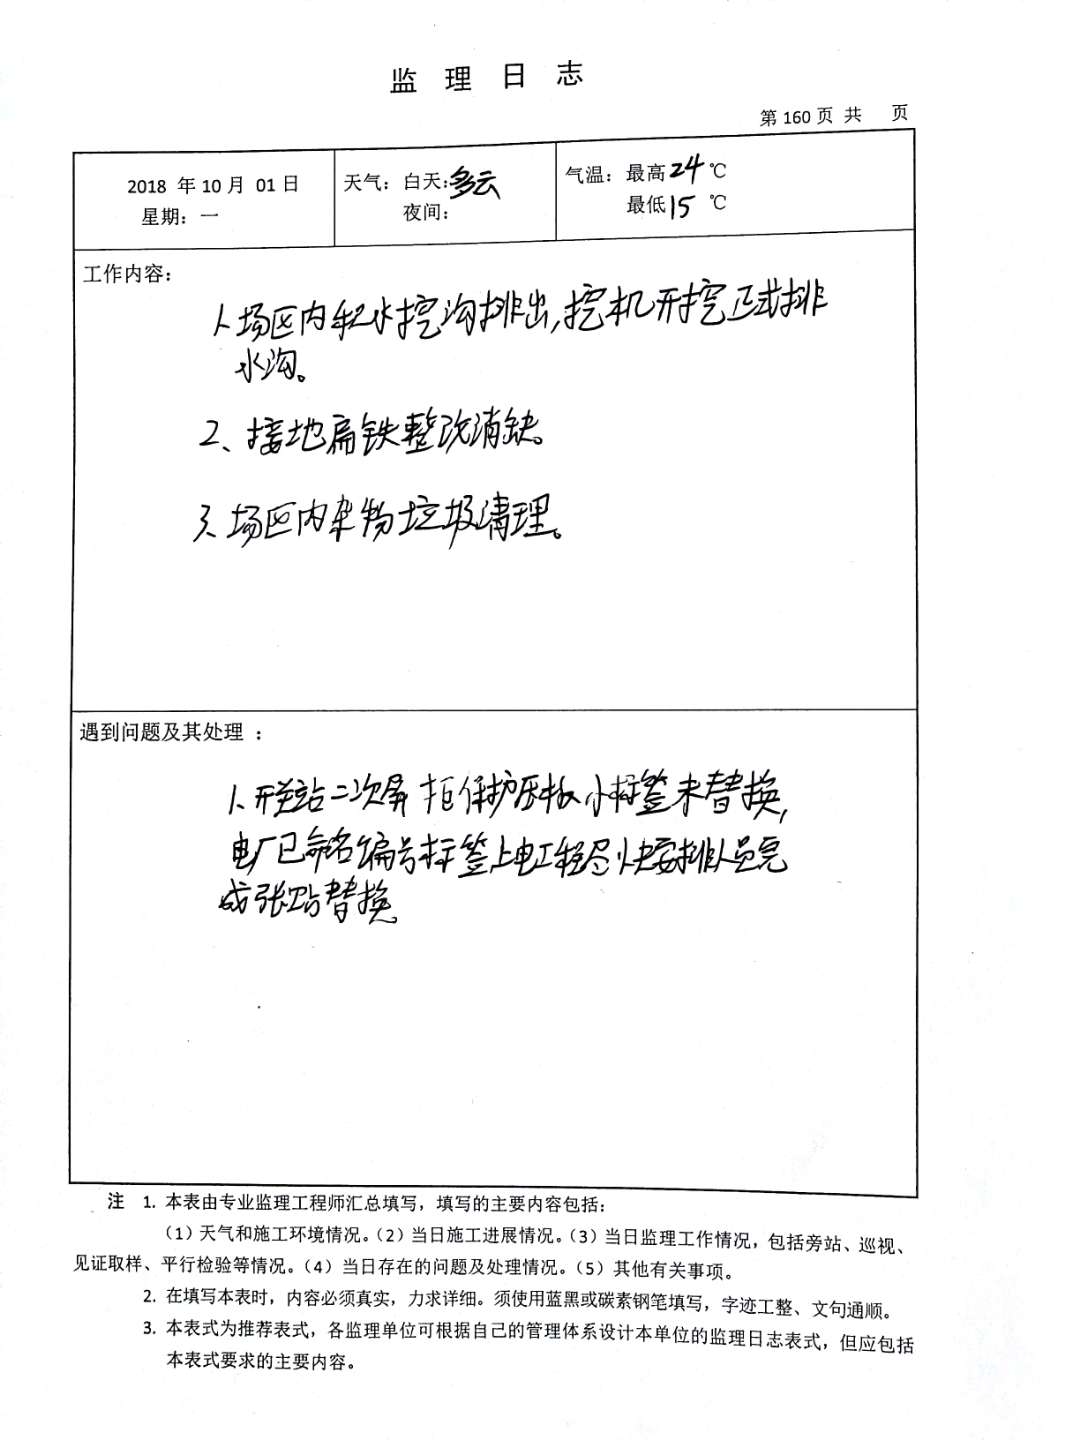 监 理 日 志
第 160 页 共 页
2018 年 10 月 01 日
星期：一
天气：白天：多云
夜间：
气温：最高 24 ℃
最低 15 ℃
工作内容：
1、场区内积水挖沟排出,挖机开挖正式排
水沟。
2、接地扁铁整改消缺。
3、场区内杂物垃圾清理。
遇到问题及其处理 ：
1、开关站二次屏柜保护压板小标签未替换,
电厂已命名编号标签上电工程尽快安排人员完
成张贴替换
注 1. 本表由专业监理工程师汇总填写，填写的主要内容包括：
（1）天气和施工环境情况。（2）当日施工进展情况。（3）当日监理工作情况，包括旁站、巡视、
见证取样、平行检验等情况。（4）当日存在的问题及处理情况。（5）其他有关事项。
2. 在填写本表时，内容必须真实，力求详细。须使用蓝黑或碳素钢笔填写，字迹工整、文句通顺。
3. 本表式为推荐表式，各监理单位可根据自己的管理体系设计本单位的监理日志表式，但应包括
本表式要求的主要内容。